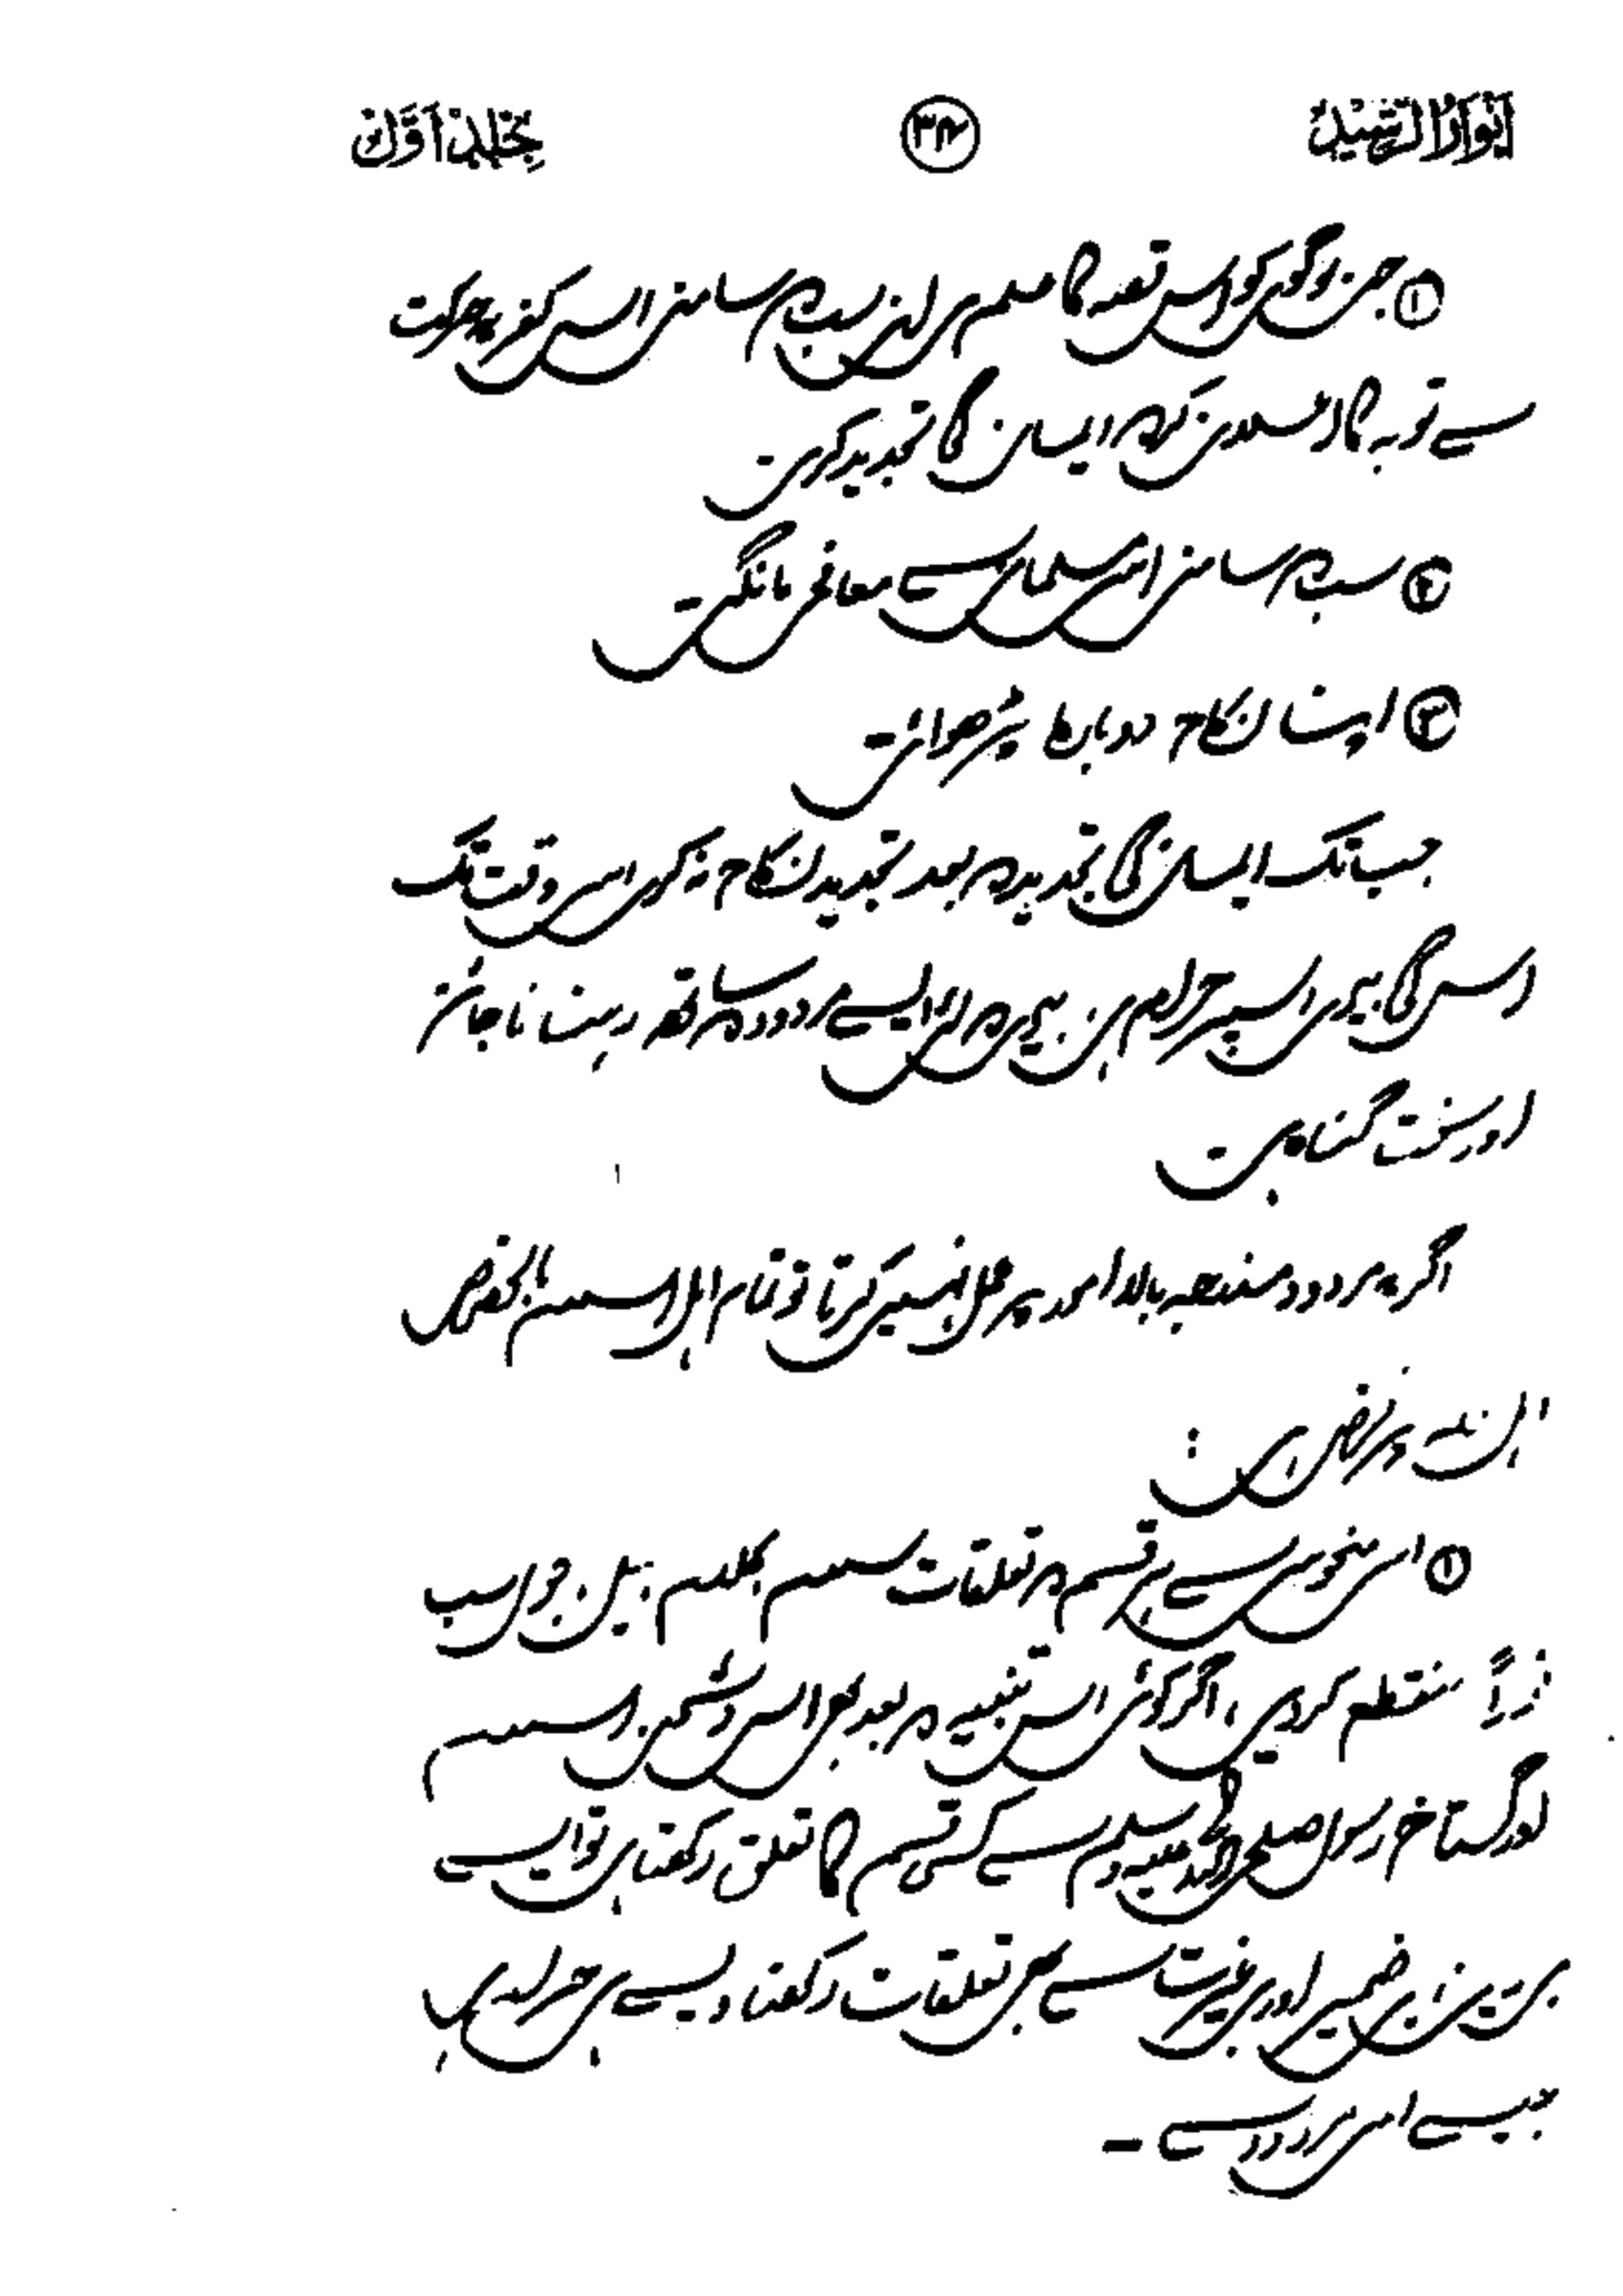 انوار الرشید ۳۴ جلد اول
① جن لوگوں کو اس قصہ کا علم ہے ان سب کے سامنے اس کفریہ حرکت
سے توبہ کا اعلان کرکے ایمان کی تجدید کریں
② سب کے سامنے اس مسلمان سے معافی مانگیں
③ اپنا نکاح دوبارہ پڑھوائیں
جب تک ایمان کی تجدید کے بعد تجدید نکاح نہ کرے اس وقت تک
اس کی بیوی اس پر حرام ہے، بیوی کے لئے ایسے مردود کے ساتھ رہنا ناجائز
اور سخت گناہ ہے
اگر یہ مردود مندرجہ بالا امور پر عمل نہیں کرتا تو تمام اہل اسلام بالخصوص
پر فرض ہے کہ:
① اس منحوس سے ہر قسم کے تعلقات سلام کلام، میل جول سب
فوراً منقطع کر دیں، اگر کوئی اس تنبیہ کے بعد بھی اس دشمن اسلام
اور گستاخ رسول صلی اللہ علیہ وسلم سے کسی قسم کا تعلق رکھتا ہے تو ایسے
بے دین، بے ضمیر اور بے غیرت سے بھی تعلقات رکھنا ویسے ہی حرام ہے
جیسے اس مردود سے -